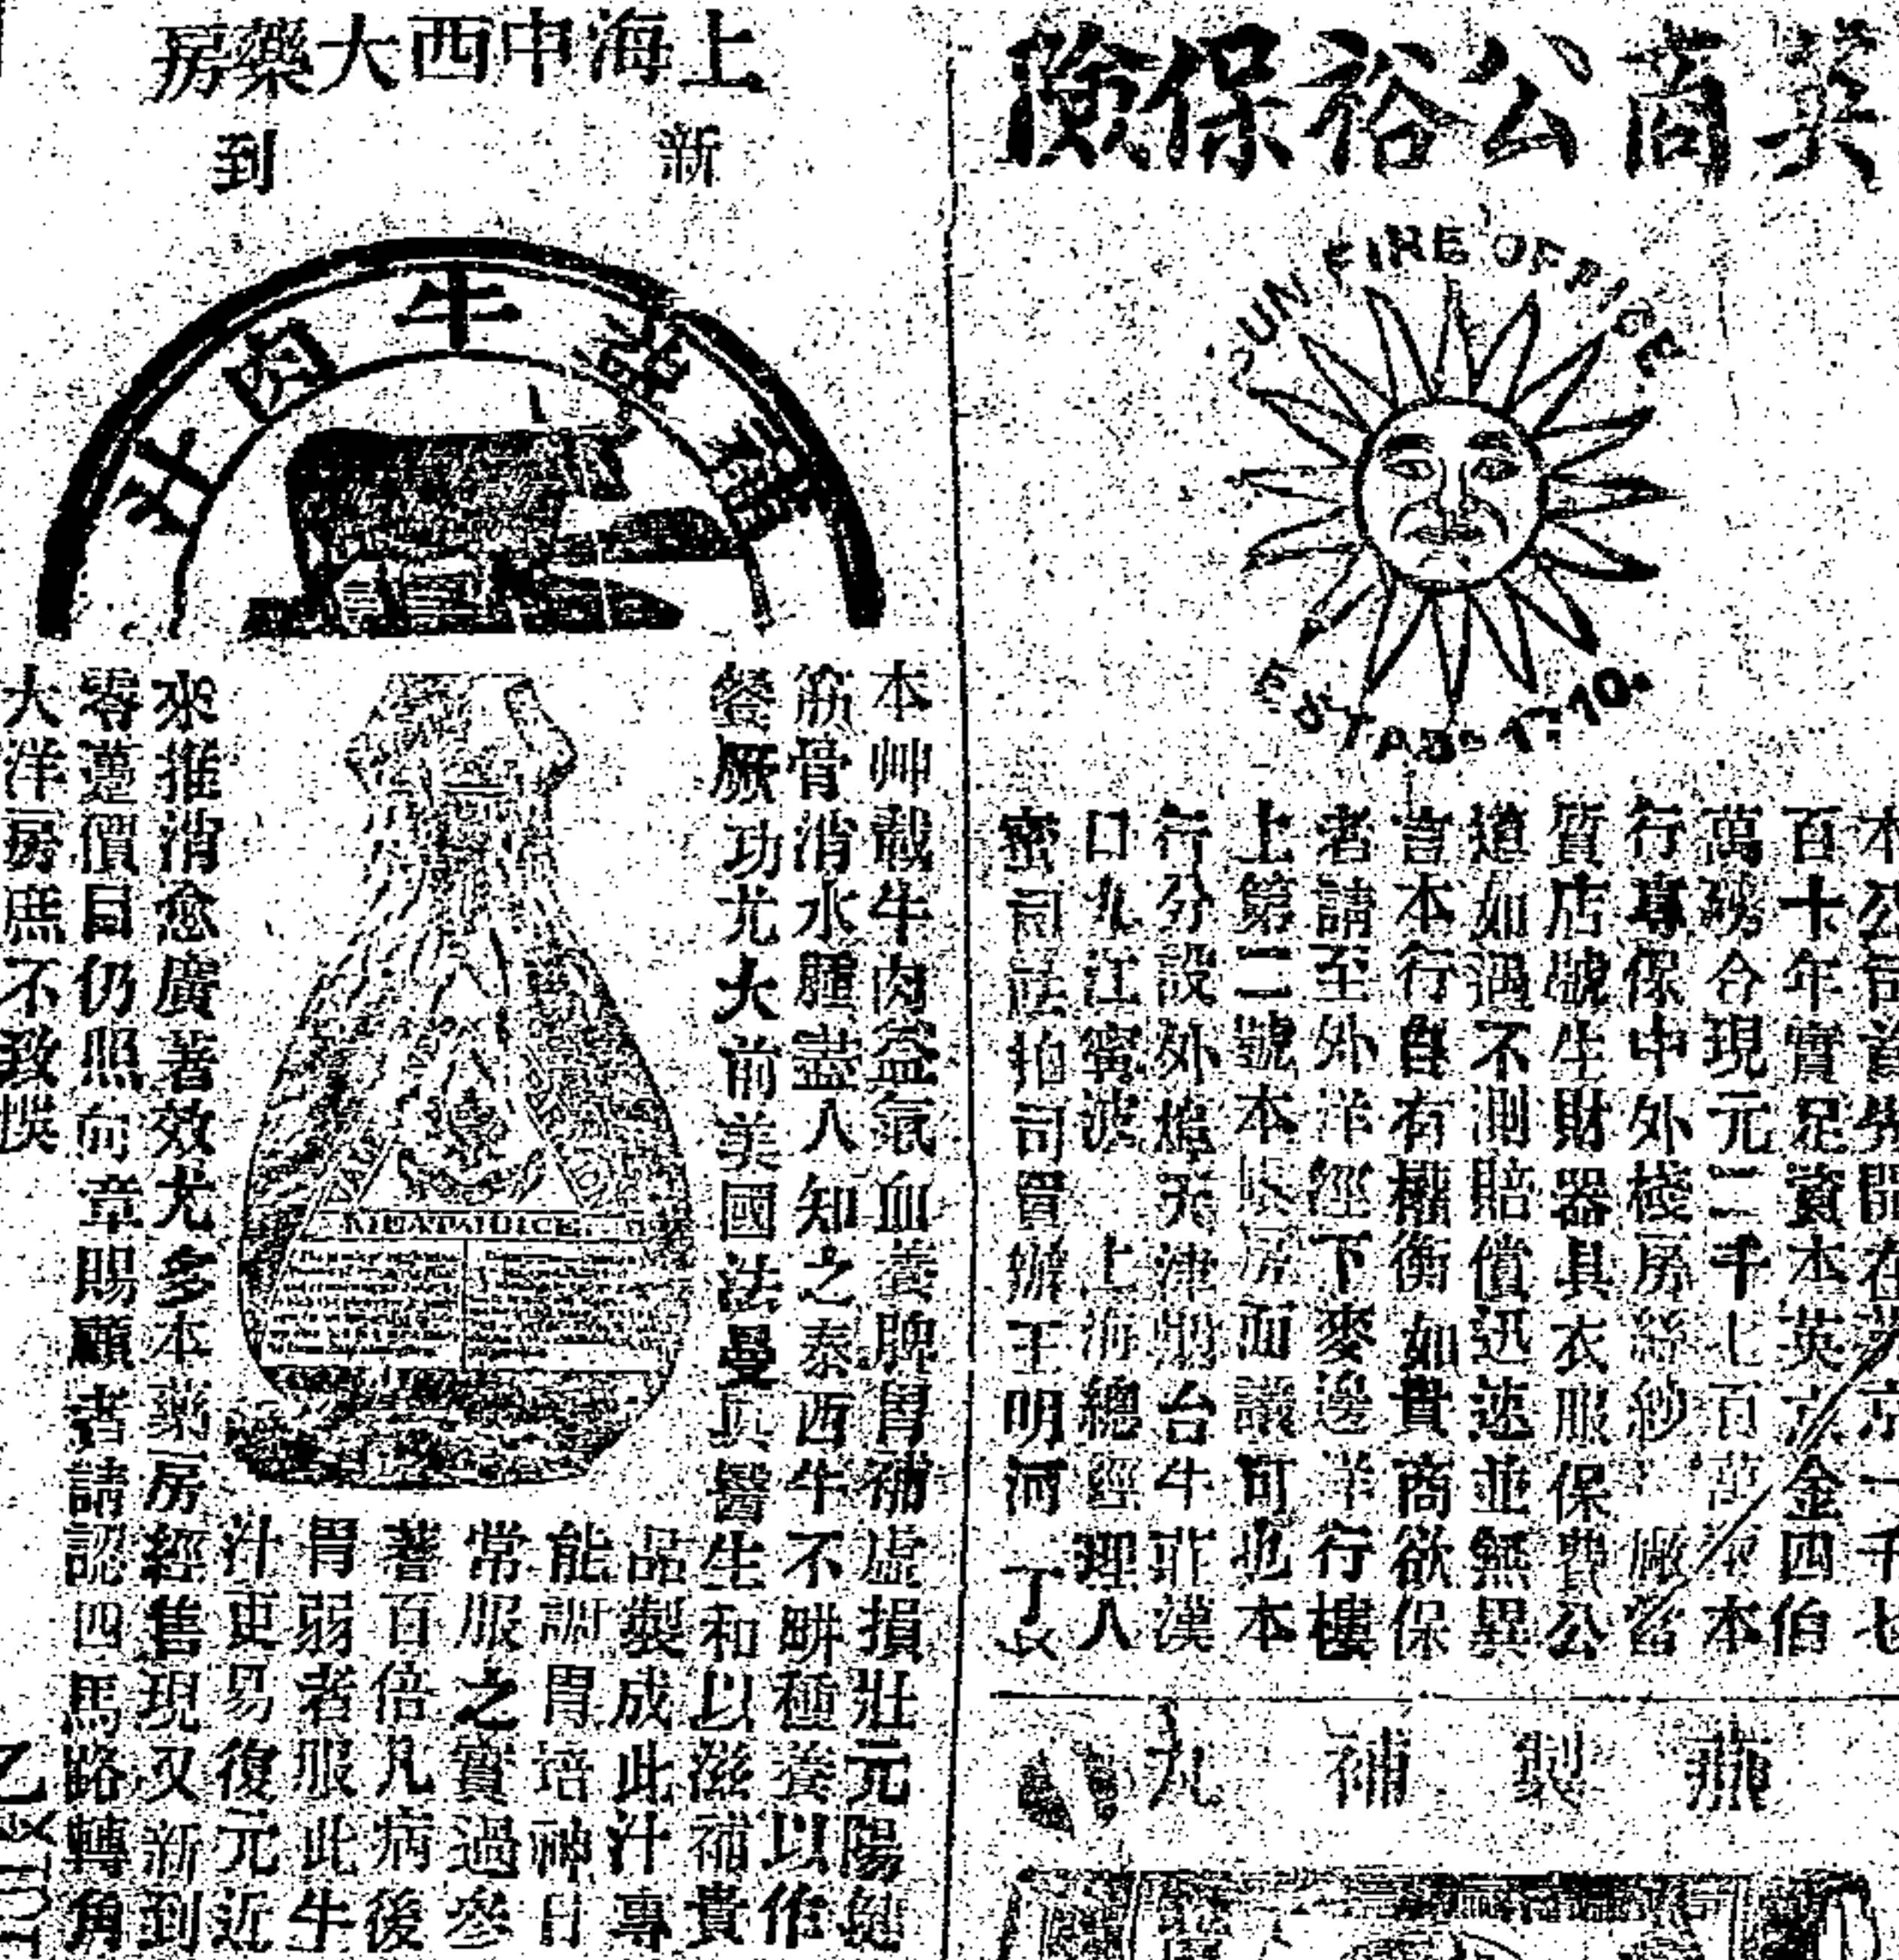 英商公裕保險
SUN FIRE OFFICE
ESTABD 1710.
本公司首先開在英京一千七
百十年實足資本英京金四伯
萬磅合現元二千七百萬本
行專保中外棧房絲紗廠
質店號生財器具衣服保費公
道如遇不測賠償迅速並無異
言本行自有權衡如貴商欲保
者請至外洋涇下麥邊洋行樓
上第二號本賬房面議可也本
行分設外埠天津烟台牛莊漢
口九江寧波 上海總經理人
司 拍司 辦王明河
燕製補丸
上海中西大藥房
新到
牛肉汁
本艸載牛肉益氣血養脾胃補虛損壯元陽健
筋骨消水腫盡人知之泰西牛不畊種養以作
餐厥功尤大前美國法曼 醫生和以滋補貴
品製成此汁專
能 胃培神日
常服之實過參
蓍百倍凡病後
胃弱者服此牛
汁更易復元近
來推消愈廣著效尤多本葯房經售現又新到
零躉價目仍照向章賜顧者請認四馬路轉角
大洋房庶不致悞
MEAT JUICE